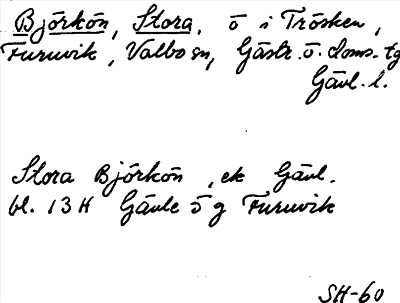 Björkön, Stora, ö i Trösken,
Furuvik, Valbo sn, Gästr. ö. doms. tg
Gävl. l.
Stora Björkön, ek Gävl.
bl. 13H Gävle ö g Furuvik
SH-60